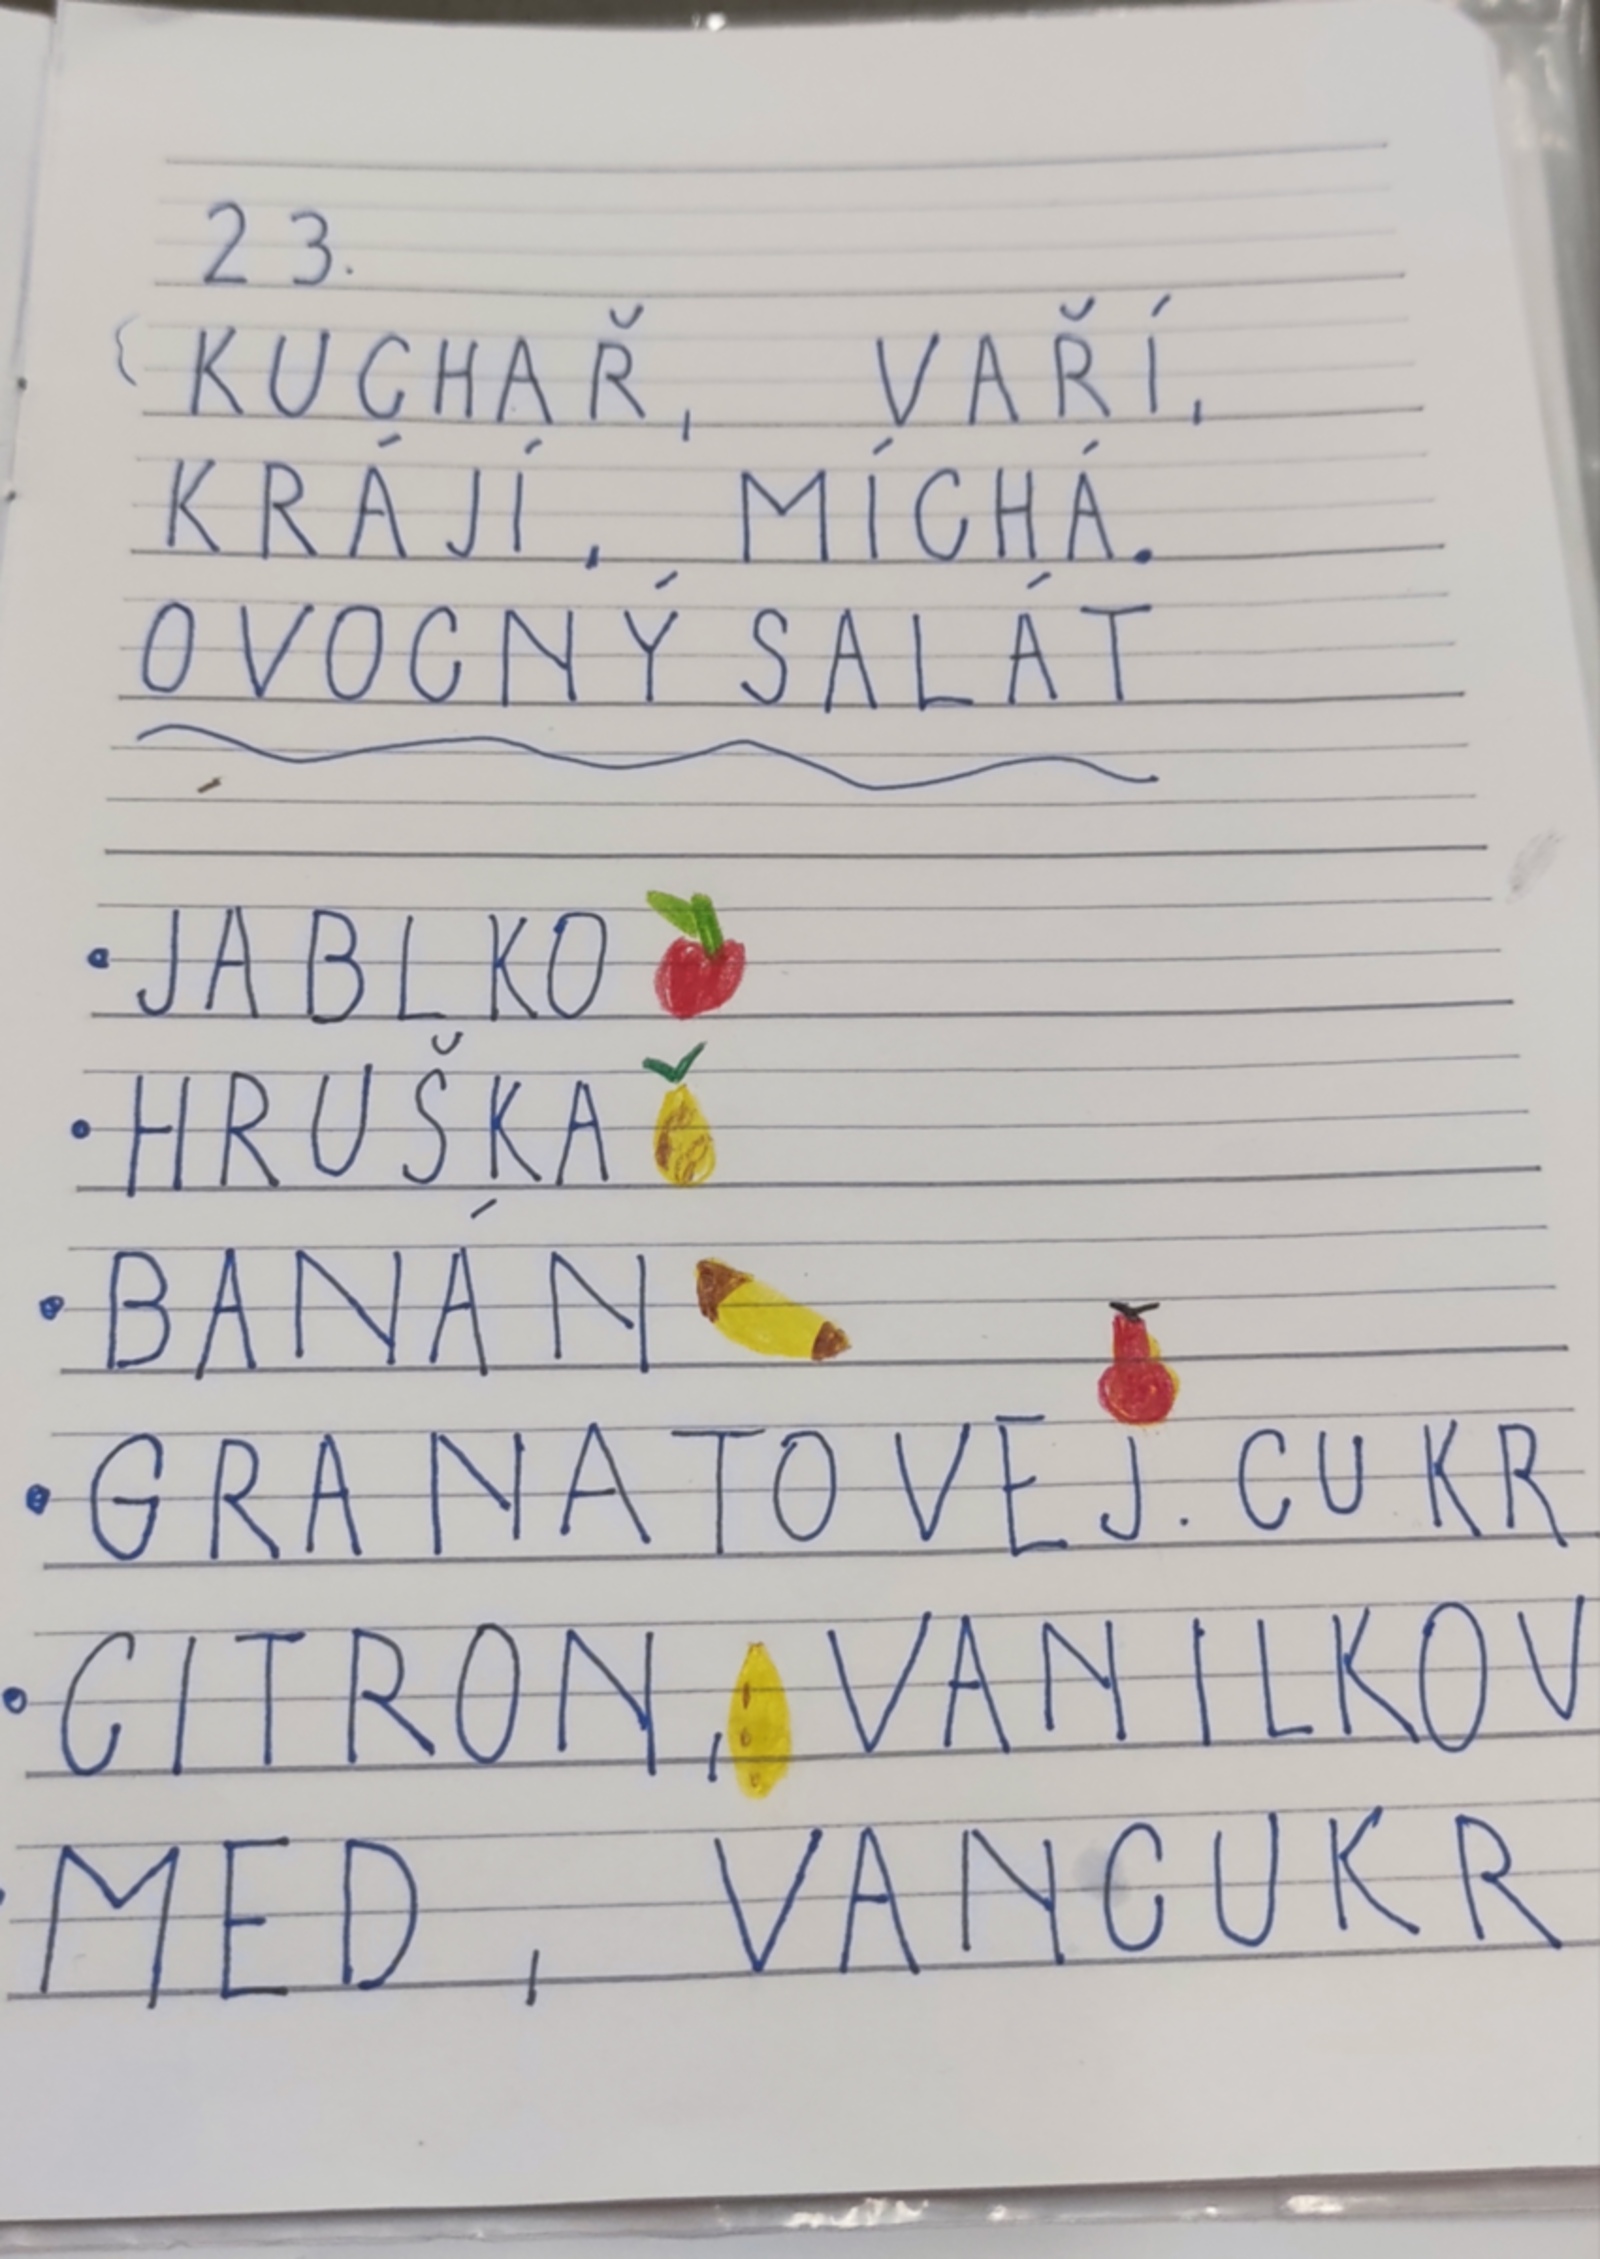 23.
KUCHAŘ, VAŘÍ,
KRÁJÍ, MÍCHÁ.
OVOCNÝ SALÁT
• JABLKO
• HRUŠKA
• BANÁN
• GRANATOVE J. CUKR
• CITRON, VANILKOV
• MED, VANCUKR